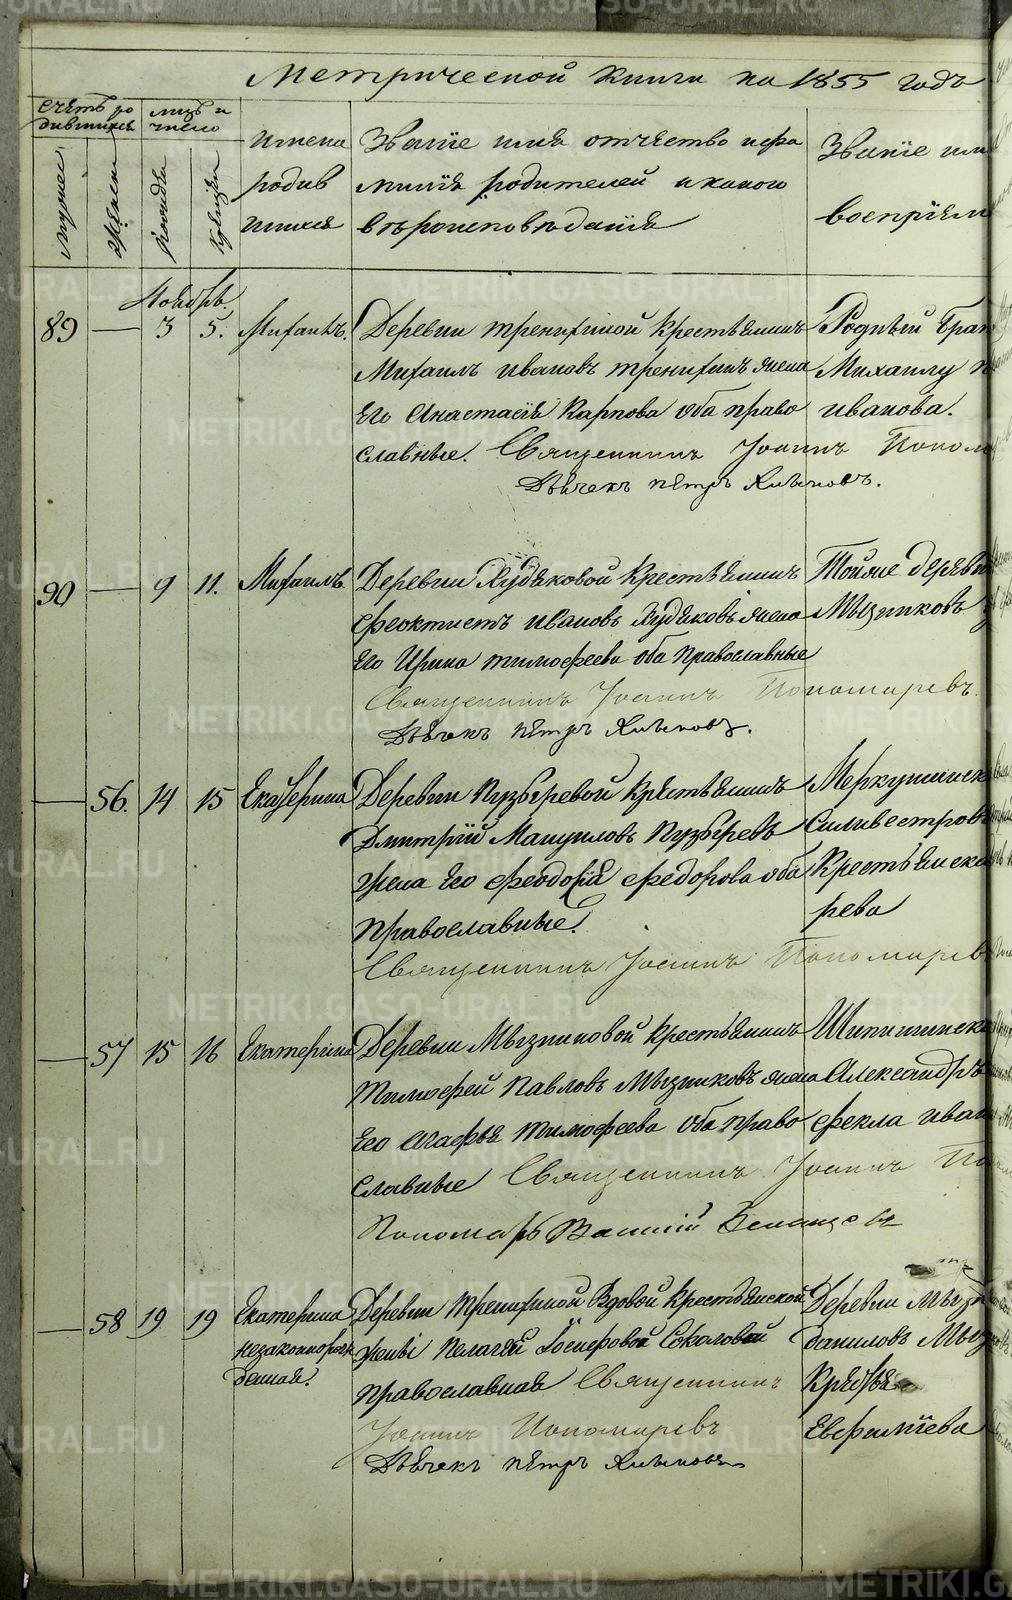 METRIKI.GASO-URAL.RU
Метрической книги на 1855 годъ
счетъ ро
дившихся
мцъ и
число
мужеск
женск
рожде
крещен
имена
родив
шихся
Званіе имя отчество и фа
милія родителей и какого
вѣроисповѣданія
Званіе им
воспріем
Ноябрь
89 — 3 5. Михаилъ.
Деревни Тренихиной Крестьянинъ
Михаилъ Ивановъ Тренихинъ жена
Его Анастасія Карпова оба право
славные. Священникъ Іоаннъ Поном
Дьячекъ Петръ Хлыновъ.
Родный Брат
Михаилу
Иванова.
90 — 9 11. Михаилъ
Деревни Худяковой Крестьянинъ
Феоктистъ Ивановъ Худяковъ жена
Его Ирина Тимофеева оба Православные
Священникъ Іоаннъ Пономаревъ.
Дьячекъ Петръ Хлыновъ.
Тойже деревн
Мызниковъ
— 56. 14 15 Екатерина
Деревни Пузыревой Крестьянинъ
Дмитрій Мануиловъ Пузыревъ
жена Его Феодосія Федорова оба
Православные.
Священникъ Іоаннъ Пономарев
Меркушинск
Силивестровъ
Крестьянска
рева
— 57 15 16 Екатерина
Деревни Мызниковой Крестьянинъ
Тимофей Павловъ Мызниковъ жена
Его Агафья Тимофеева оба право
славные Священникъ Іоаннъ По
Пономарь Василій
Шипишинска
Александръ
Фекла Иван
— 58 19 19 Екатерина
незаконнорож
денная.
Деревни Тренихиной Вдовой Крестьянской
жены Пелагеи Іосифовой Соколовой
Православная Священникъ
Іоаннъ Пономаревъ
Дьячекъ Петръ Хлыновъ
Деревни Мызн
Даниловъ Мыз
Крестья
Евфиміева